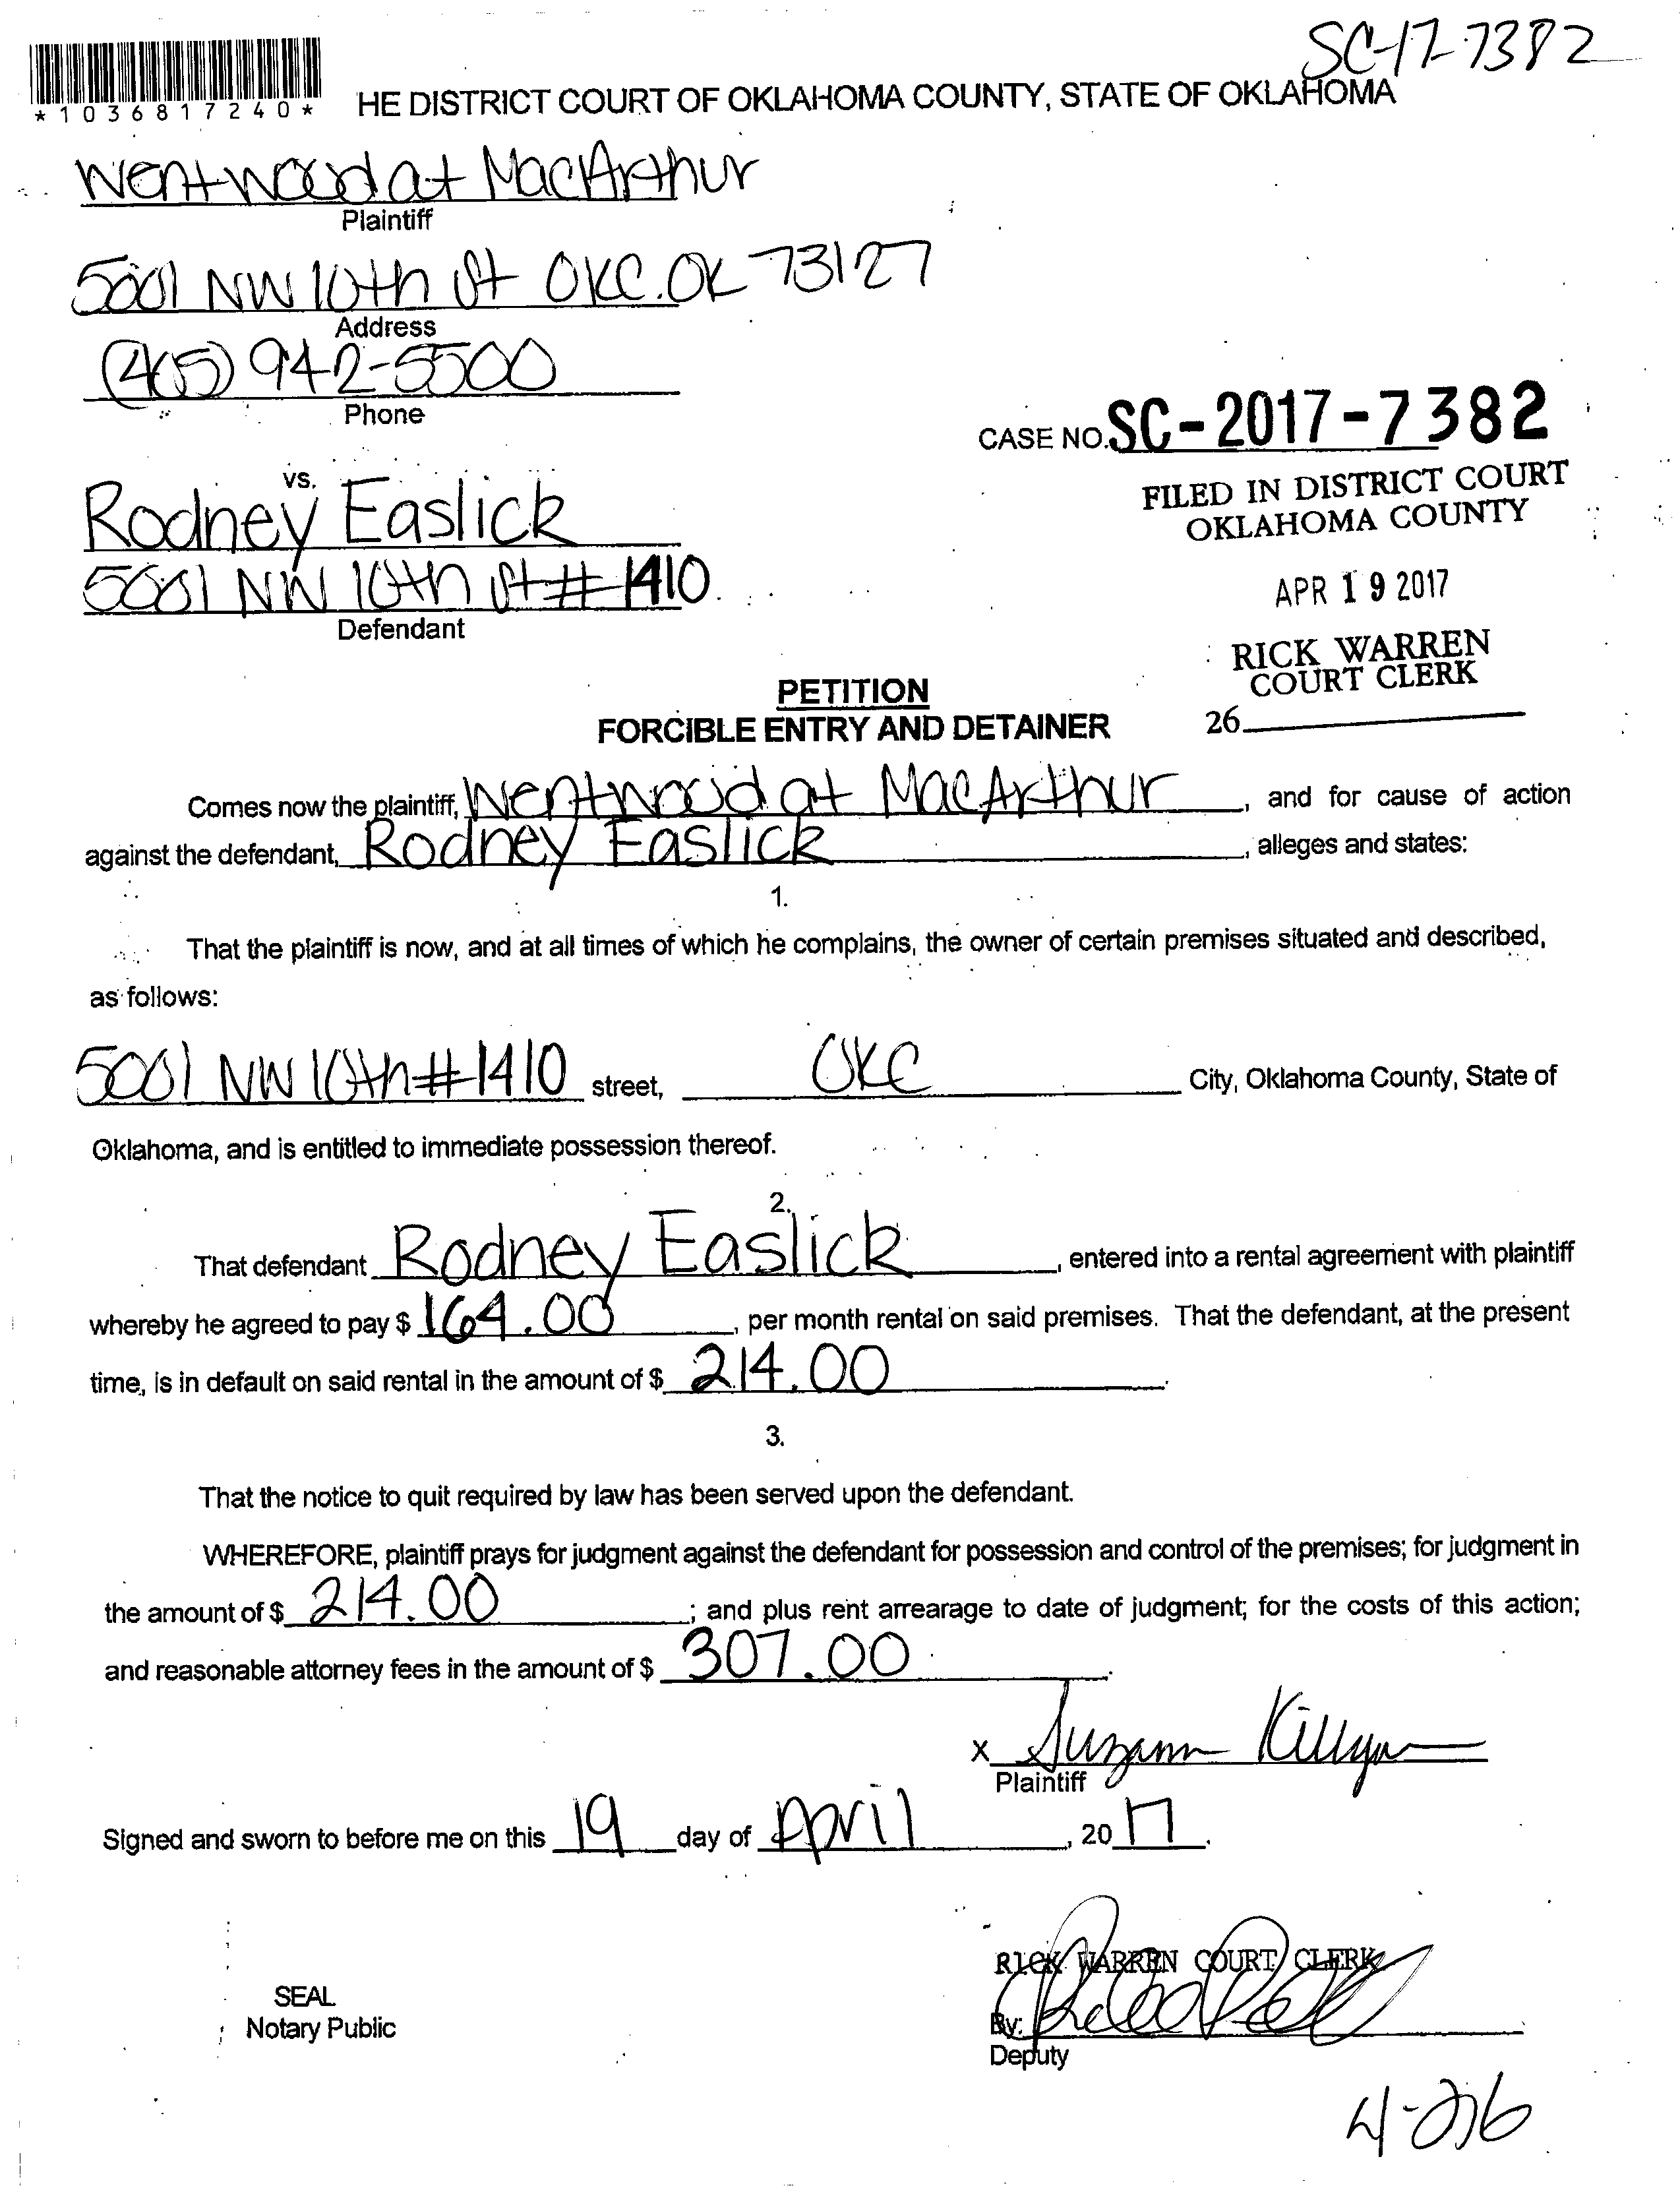 SC-17-7382
*1036817240*
HE DISTRICT COURT OF OKLAHOMA COUNTY, STATE OF OKLAHOMA
Wentwood at MacArthur
Plaintiff
5001 NW 10th St OKC. OK 73127
Address
(405) 942-5500
Phone
CASE NO. SC-2017-7382
FILED IN DISTRICT COURT
OKLAHOMA COUNTY
APR 19 2017
RICK WARREN
COURT CLERK
26
vs.
Rodney Easlick
5001 NW 10th St # 1410
Defendant
PETITION
FORCIBLE ENTRY AND DETAINER
Comes now the plaintiff, Wentwood at MacArthur, and for cause of action
against the defendant, Rodney Easlick, alleges and states:
1.
That the plaintiff is now, and at all times of which he complains, the owner of certain premises situated and described,
as follows:
5001 NW 10th # 1410 street, OKC City, Oklahoma County, State of
Oklahoma, and is entitled to immediate possession thereof.
2.
That defendant Rodney Easlick, entered into a rental agreement with plaintiff
whereby he agreed to pay $ 164.00, per month rental on said premises. That the defendant, at the present
time, is in default on said rental in the amount of $ 214.00.
3.
That the notice to quit required by law has been served upon the defendant.
WHEREFORE, plaintiff prays for judgment against the defendant for possession and control of the premises; for judgment in
the amount of $ 214.00; and plus rent arrearage to date of judgment; for the costs of this action;
and reasonable attorney fees in the amount of $ 307.00.
x Suzann
Plaintiff
Signed and sworn to before me on this 19 day of April, 2017.
RICK WARREN COURT CLERK
SEAL
Notary Public
By:
Deputy
4-26